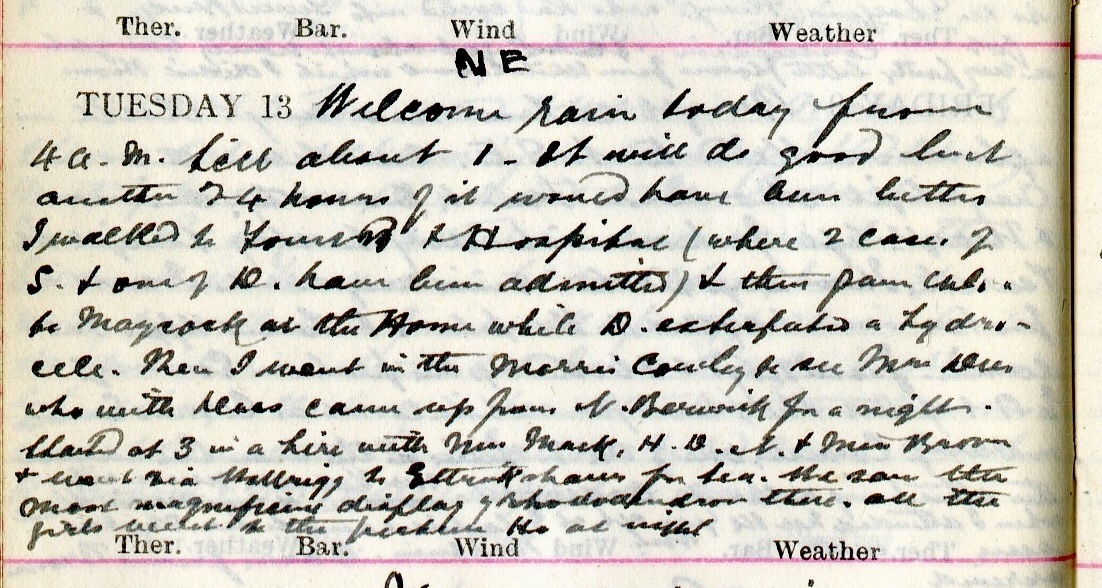 Ther. Bar. Wind Weather
NE
TUESDAY 13 Welcome rain today from
4 a.m. till about 1 - It will do good but
another 24 hours of it would have been better
I walked to & Hospital (where 2 cases of
S. & one of D. have been admitted) & then gave
to Maycock at the Home while D. extirpated a hydro-
cele. Then I went in the Morris Cowley to see Mrs
who with came up from N. Berwick for a night.
Started at 3 in a hire with Mrs Mack, H. D. N. & Miss Brown
& went via to Ettrickshaws for tea. We saw the
most magnificent display of Rhododendron there. All the
girls went to the picture Ho at night
Ther. Bar. Wind Weather